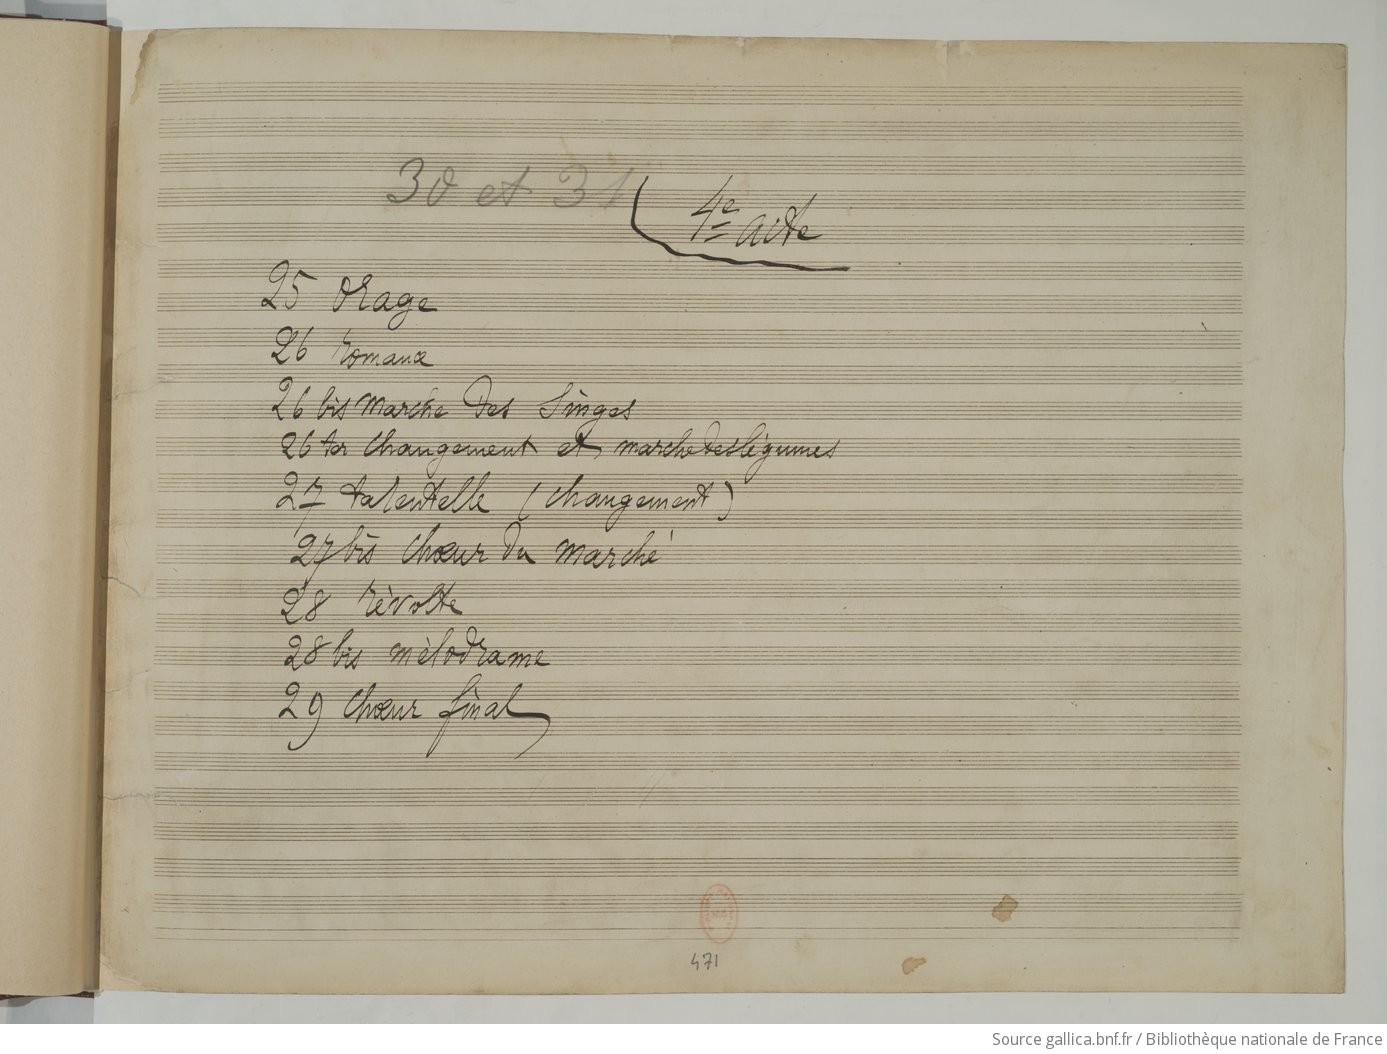 30 et 31
4e acte
25 Orage
26 romance
26 bis marche des Singes
26 ter changement et marche des légumes
27 tarentelle (changement)
27 bis chœur du marché
28 révolte
28 bis mélodrame
29 Chœur final
471
Source gallica.bnf.fr / Bibliothèque nationale de France